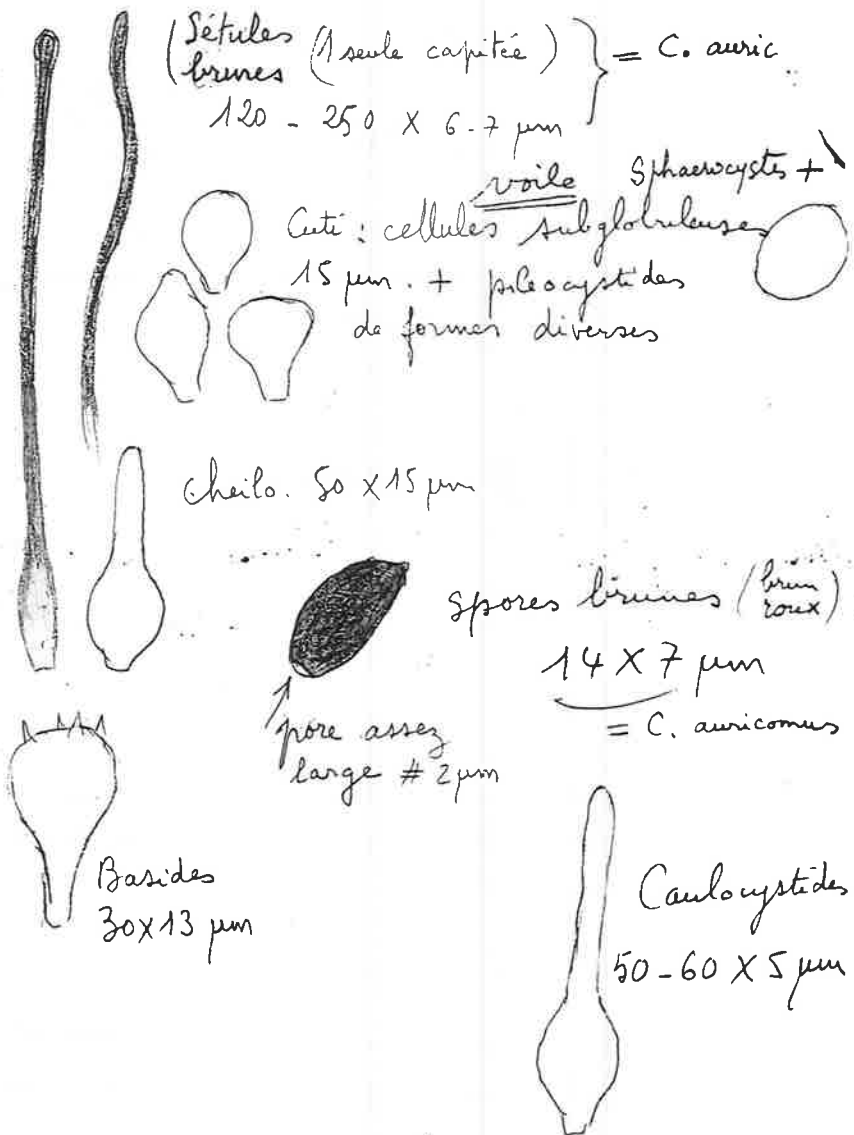 Sétules
brunes (1 seule capitée) = C. auric
120 - 250 X 6-7 µm
voile Sphaerocystes +
Cuti : cellules subglobuleuses
15 µm. + pileocystides
de formes diverses
Cheilo. 50 X 15 µm
Spores brunes (brun
roux)
14 X 7 µm
= C. auricomus
pore assez
large # 2 µm
Basides
30 X 13 µm
Caulocystides
50-60 X 5 µm